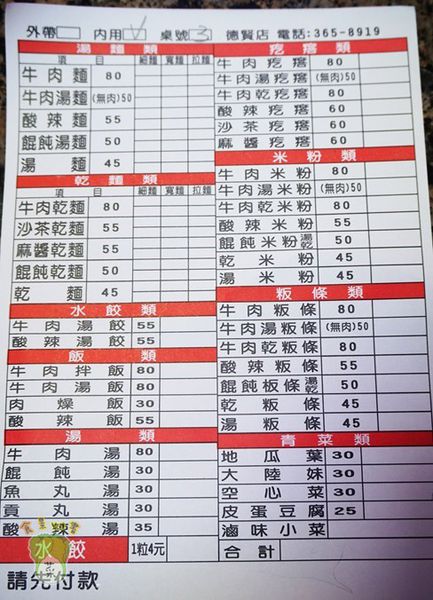 外帶 內用 V 桌號 3 德賢店 電話:365-8919
湯麵類
項目 細麵 寬麵 拉麵
牛肉麵 80
牛肉湯麵 (無肉)50
酸辣麵 55
餛飩湯麵 50
湯麵 45
乾麵類
項目 細麵 寬麵 拉麵
牛肉乾麵 80
沙茶乾麵 55
麻醬乾麵 55
餛飩乾麵 50
乾麵 45
水餃類
牛肉湯餃 55
酸辣湯餃 55
飯類
牛肉拌飯 80
牛肉湯飯 80
肉燥飯 30
酸辣飯 55
湯類
牛肉湯 80
餛飩湯 30
魚丸湯 30
貢丸湯 30
酸辣湯 35
水餃 1粒4元
請先付款
疙瘩類
牛肉疙瘩 80
牛肉湯疙瘩 (無肉)50
牛肉乾疙瘩 80
酸辣疙瘩 60
沙茶疙瘩 60
麻醬疙瘩 60
米粉類
牛肉米粉 80
牛肉湯米粉 (無肉)50
牛肉乾米粉 80
酸辣米粉 55
餛飩米粉湯乾 50
乾米粉 45
湯米粉 45
粄條類
牛肉粄條 80
牛肉湯粄條 (無肉)50
牛肉乾粄條 80
酸辣粄條 55
餛飩粄條湯乾 50
乾粄條 45
湯粄條 45
青菜類
地瓜葉 30
大陸妹 30
空心菜 30
皮蛋豆腐 25
滷味小菜
合計